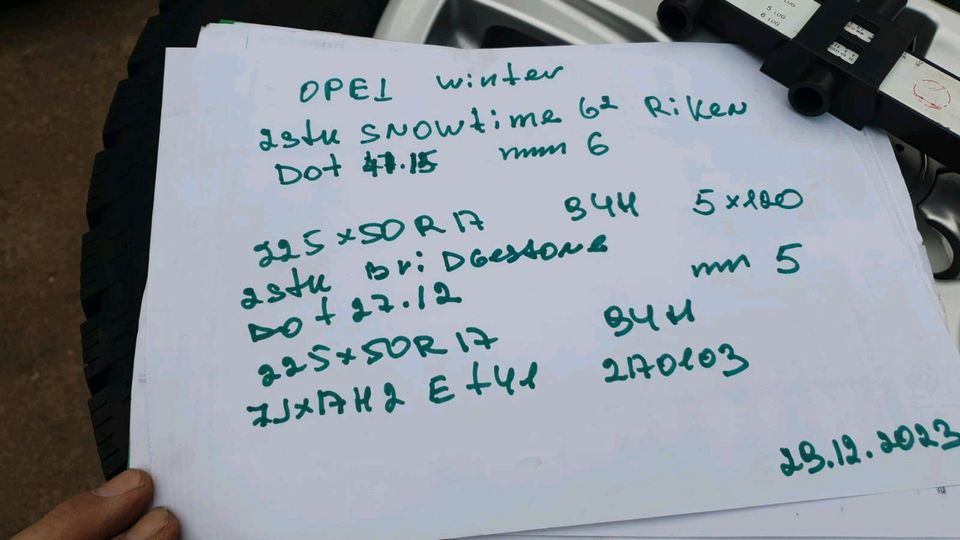 OPEL winter
2stk SNOWtime 62 Riken
Dot 41.15 mm 6
225x50R17 94H 5x120
2stk BriDGestone
Dot 27.12 mm 5
225x50R17 94H
7Jx17H2 Et41 2170103
29.12.2023
5 LUG
6 LUG